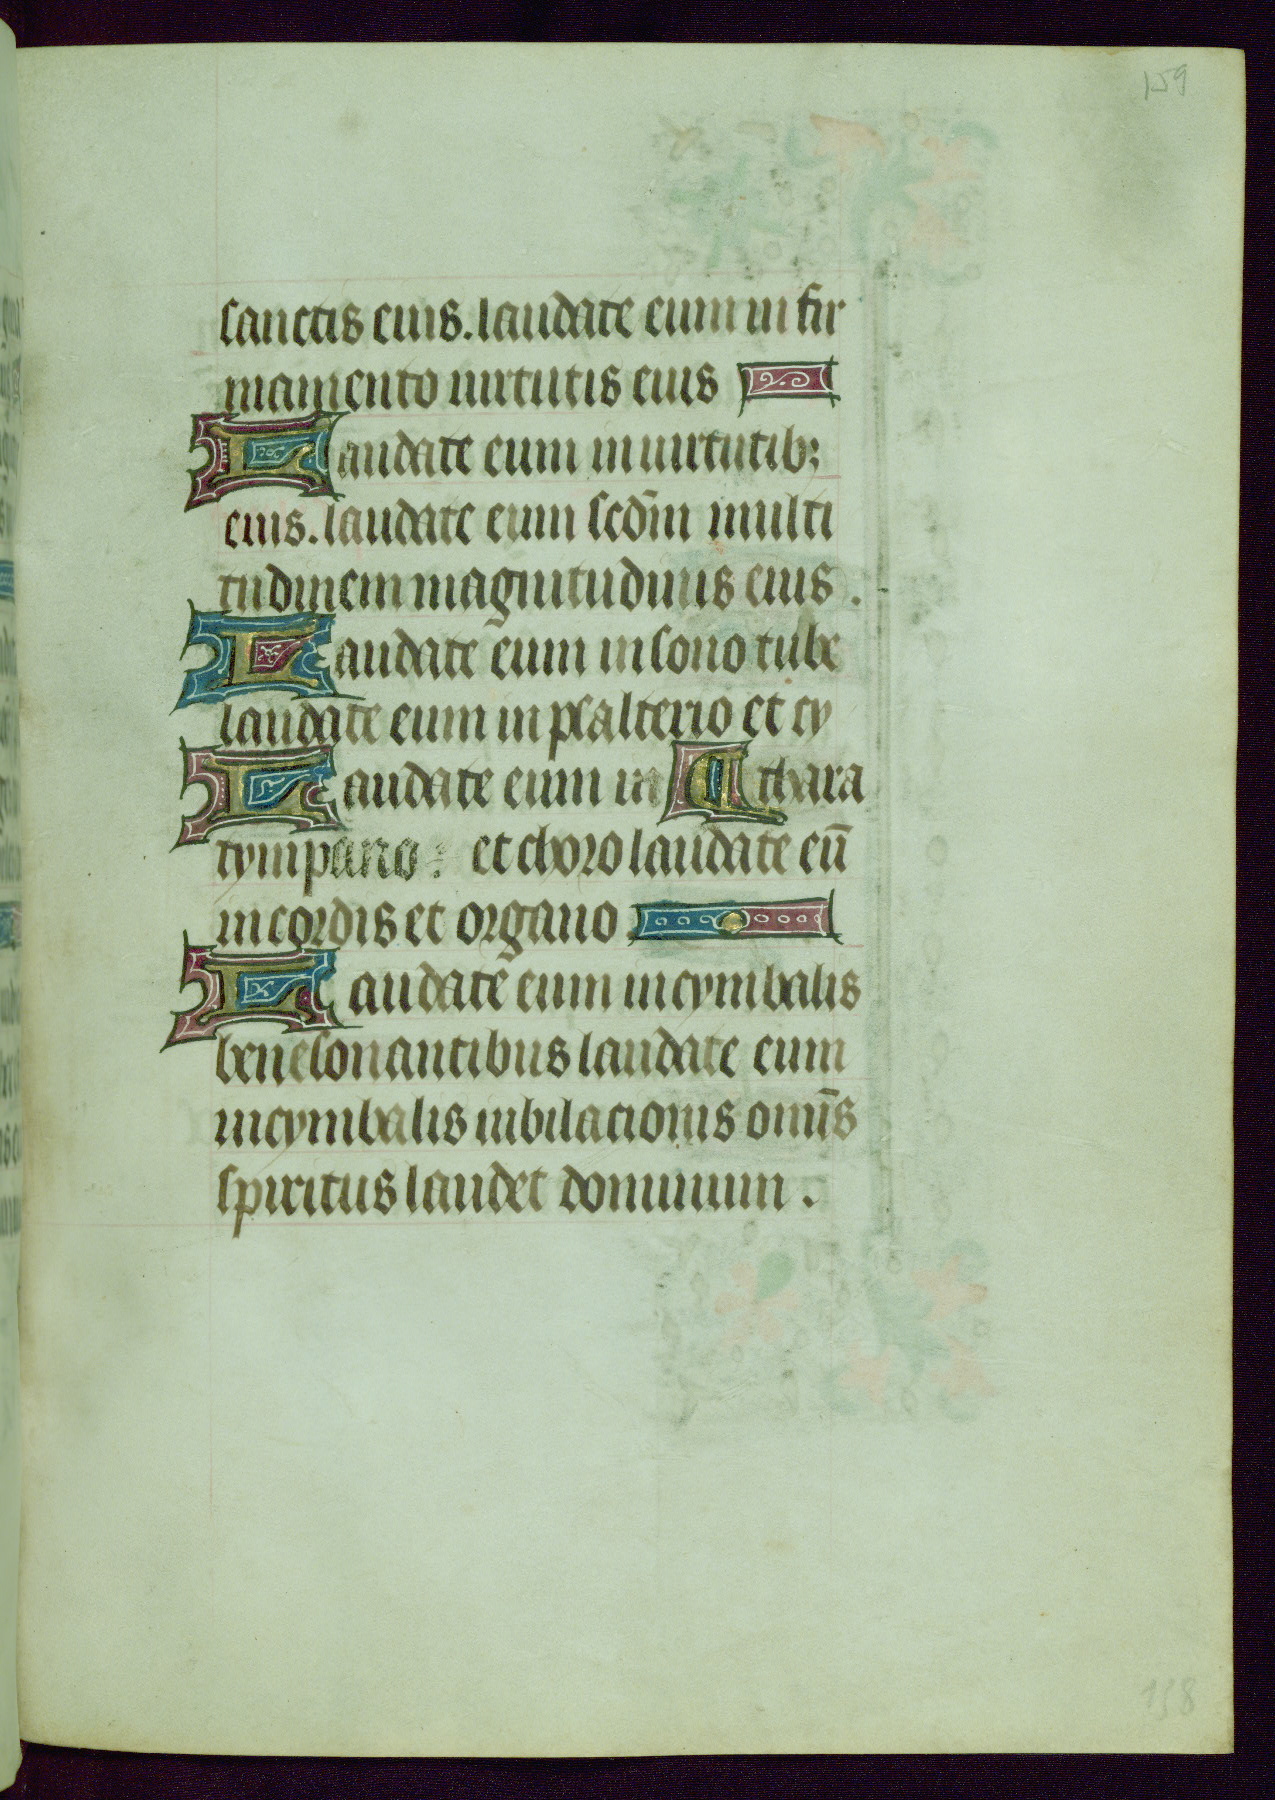 159
sanctis eius. laudate eum in fir
mamento uirtutis eius
Laudate eum in uirtutib;
eius. laudate eum scdm̄ multi
tudinem magnitudinis eius.
Laudate eum in sono tube
laudate eum in psalterio et cy
Laudate eum in Cthara
tympano: et choro laudate eū
in cordis et organo.
Laudate eum in cymbalis
benesonantibus laudate eum
in cymbalis iubilacionis omīs
spiritus laudet dominum.
158